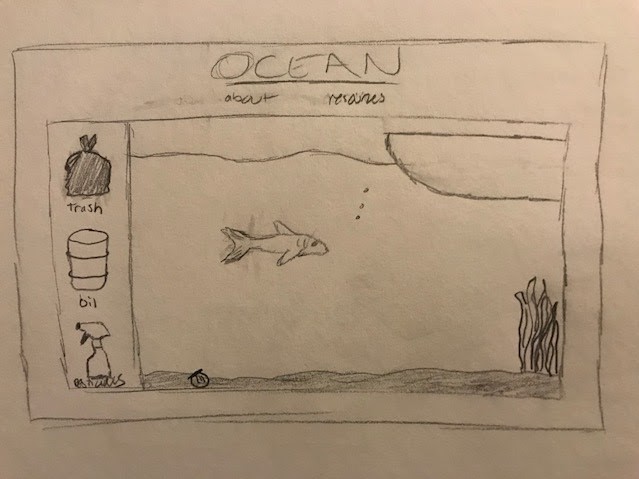 OCEAN
about resources
trash
oil
pesticides